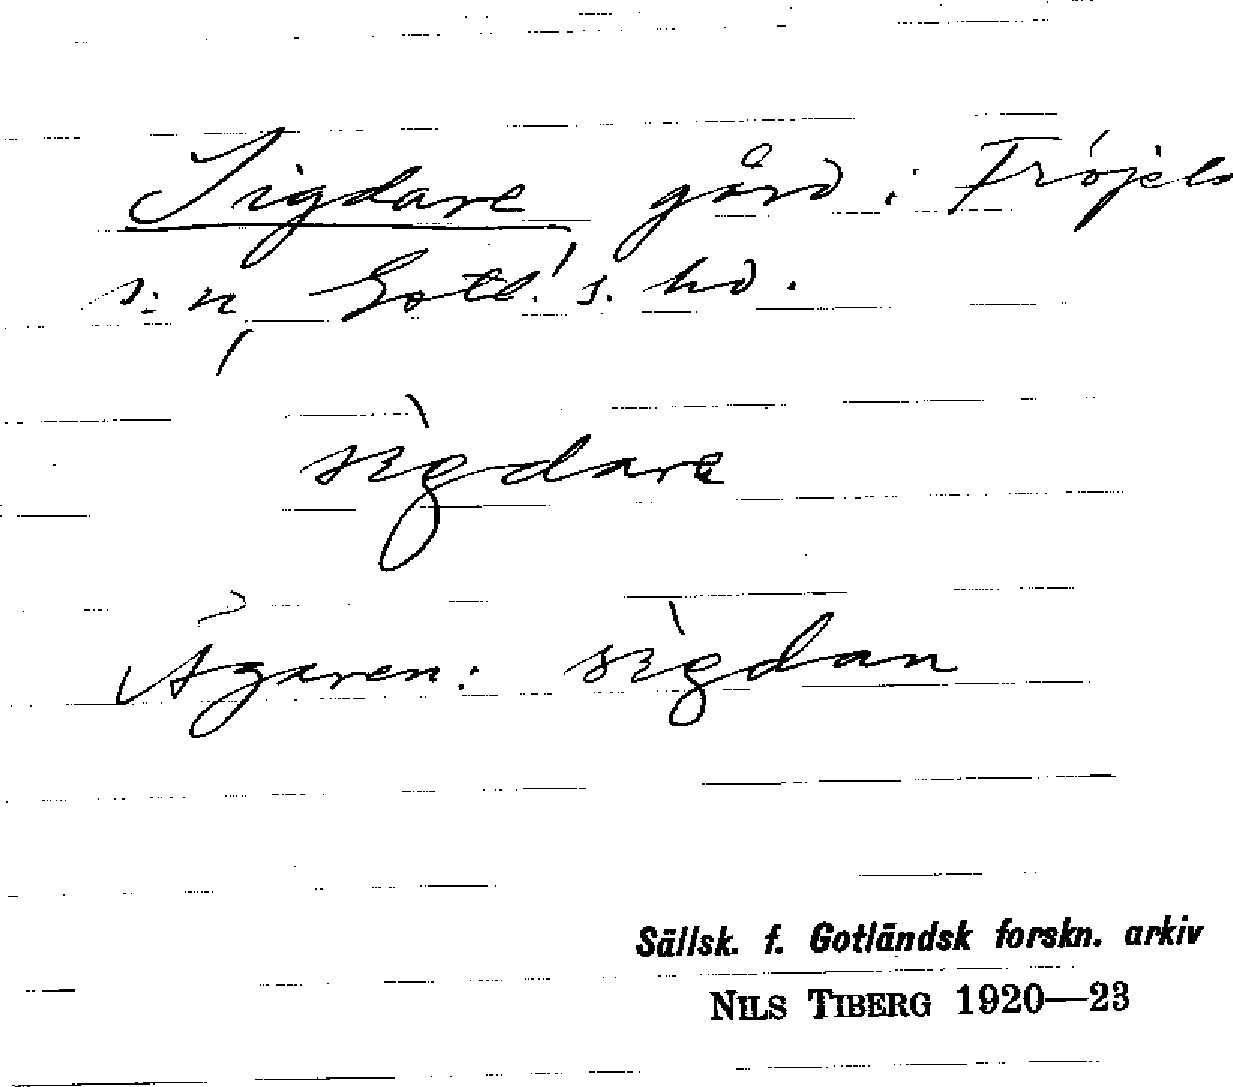 Sigdare gård i Fröjels
s:n, Gotl:s s. hd.
sìgdare
Ägaren: sìgdan
Sällsk. f. Gotländsk forskn. arkiv
NILS TIBERG 1920—23